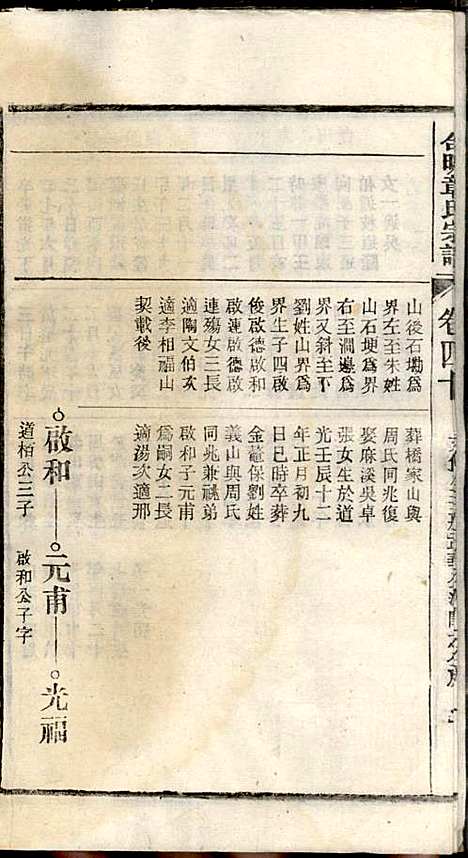 章氏宗譜
卷四十
山後石塝為
界左至朱姓
山石埂爲界
右至澗邊爲
界又斜至下
劉姓山界爲
界生子四啟
俊啟德啟和
啟蓮啟德啟
連殤女三長
適陶文伯次
適李相福山
契載後
葬橋家山與
周氏同兆復
娶麻溪吳卓
張女生於道
光壬辰十二
年正月初九
日巳時卒葬
金薹保劉姓
義山與周氏
同兆兼祧弟
啟和子元甫
爲嗣女二長
適湯次適邢
啟和
元甫
光福
道栢公三子
啟和公子字